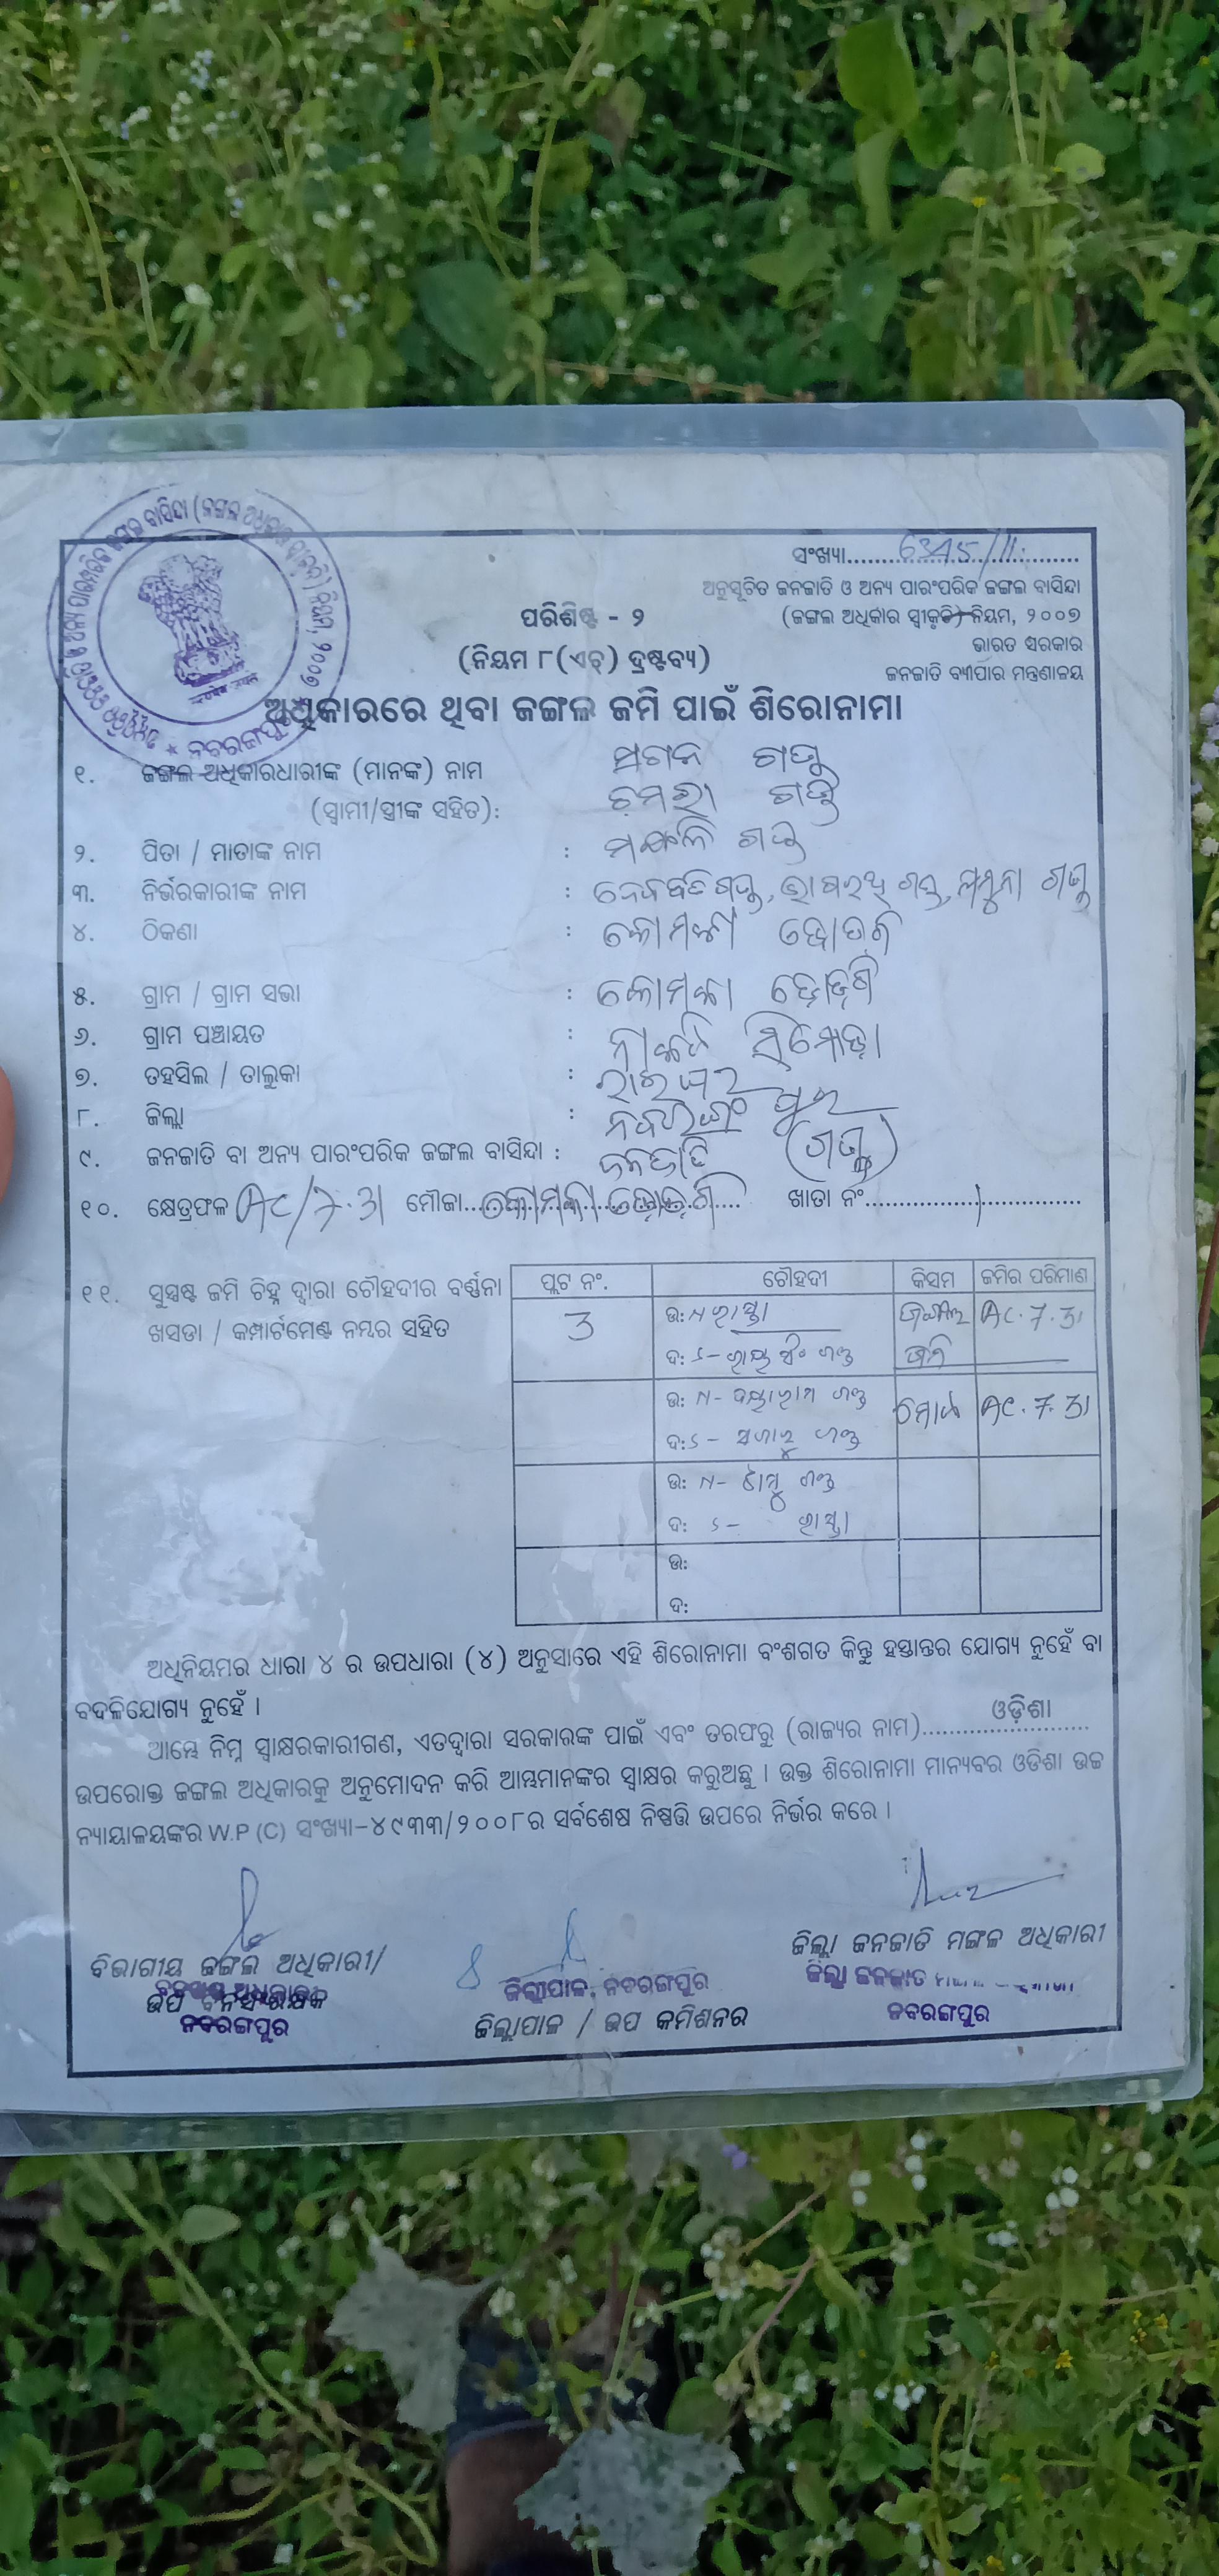 ସଂଖ୍ୟା.........6345/11............
ଅନୁସୂଚିତ ଜନଜାତି ଓ ଅନ୍ୟ ପାରଂପରିକ ଜଙ୍ଗଲ ବାସିନ୍ଦା
(ଜଙ୍ଗଲ ଅଧିକାର ସ୍ୱୀକୃତି) ନିୟମ, ୨୦୦୭
ଭାରତ ସରକାର
ଜନଜାତି ବ୍ୟାପାର ମନ୍ତ୍ରଣାଳୟ
ପରିଶିଷ୍ଟ - ୨
(ନିୟମ ୮(ଏଚ୍) ଦ୍ରଷ୍ଟବ୍ୟ)
ଅଧିକାରରେ ଥିବା ଜଙ୍ଗଲ ଜମି ପାଇଁ ଶିରୋନାମା
୧. ଜଙ୍ଗଲ ଅଧିକାରଧାରୀଙ୍କ (ମାନଙ୍କ) ନାମ ମଗନ ଗଣ୍ଡ
(ସ୍ୱାମୀ/ସ୍ତ୍ରୀଙ୍କ ସହିତ): ଚମରା ଗଣ୍ଡ
୨. ପିତା / ମାତାଙ୍କ ନାମ : ଗଣ୍ଡ
୩. ନିର୍ଭରକାରୀଙ୍କ ନାମ : ଗଣ୍ଡ, ଗଣ୍ଡ, ଯମୁନା ଗଣ୍ଡ
୪. ଠିକଣା :
୫. ଗ୍ରାମ / ଗ୍ରାମ ସଭା :
୬. ଗ୍ରାମ ପଞ୍ଚାୟତ :
୭. ତହସିଲ / ତାଲୁକା : ରାଇଘର
୮. ଜିଲ୍ଲା : ନବରଙ୍ଗପୁର
୯. ଜନଜାତି ବା ଅନ୍ୟ ପାରଂପରିକ ଜଙ୍ଗଲ ବାସିନ୍ଦା : ଜନଜାତି (ଗଣ୍ଡ)
୧୦. କ୍ଷେତ୍ରଫଳ Ac/7.31 ମୌଜା.......... ଖାତା ନଂ..............................
୧୧. ସୁସ୍ପଷ୍ଟ ଜମି ଚିହ୍ନ ଦ୍ୱାରା ଚୌହଦୀର ବର୍ଣ୍ଣନା
ଖସଡା / କମ୍ପାର୍ଟମେଣ୍ଟ ନମ୍ବର ସହିତ
ପ୍ଲଟ ନଂ. ଚୌହଦୀ କିସମ ଜମିର ପରିମାଣ
3 ଉ: N ରାସ୍ତା ଜଙ୍ଗଲ Ac.7.31
ଦ: S- ସିଂ ଗଣ୍ଡ ଜମି
ଉ: N- ଦୟାରାମ ଗଣ୍ଡ ମୋଟ Ac.7.31
ଦ: S- ଗଣ୍ଡ
ଉ: N- ଗଣ୍ଡ
ଦ: S- ରାସ୍ତା
ଉ:
ଦ:
ଅଧିନିୟମର ଧାରା ୪ ର ଉପଧାରା (୪) ଅନୁସାରେ ଏହି ଶିରୋନାମା ବଂଶଗତ କିନ୍ତୁ ହସ୍ତାନ୍ତର ଯୋଗ୍ୟ ନୁହେଁ ବା
ବଦଳିଯୋଗ୍ୟ ନୁହେଁ ।
ଆମ୍ଭେ ନିମ୍ନ ସ୍ୱାକ୍ଷରକାରୀଗଣ, ଏତଦ୍ୱାରା ସରକାରଙ୍କ ପାଇଁ ଏବଂ ତରଫରୁ (ରାଜ୍ୟର ନାମ)......ଓଡ଼ିଶା......
ଉପରୋକ୍ତ ଜଙ୍ଗଲ ଅଧିକାରକୁ ଅନୁମୋଦନ କରି ଆମ୍ଭମାନଙ୍କର ସ୍ୱାକ୍ଷର କରୁଅଛୁ । ଉକ୍ତ ଶିରୋନାମା ମାନ୍ୟବର ଓଡିଶା ଉଚ୍ଚ
ନ୍ୟାୟାଳୟଙ୍କର W.P (C) ସଂଖ୍ୟା-୪୯୩୩/୨୦୦୮ର ସର୍ବଶେଷ ନିଷ୍ପତ୍ତି ଉପରେ ନିର୍ଭର କରେ ।
ବିଭାଗୀୟ ଜଙ୍ଗଲ ଅଧିକାରୀ/
ଉପ ବନସଂରକ୍ଷକ
ନବରଙ୍ଗପୁର
ଜିଲ୍ଲାପାଳ, ନବରଙ୍ଗପୁର
ଜିଲ୍ଲାପାଳ / ଉପ କମିଶନର
ଜିଲ୍ଲା ଜନଜାତି ମଙ୍ଗଳ ଅଧିକାରୀ
ଜିଲ୍ଲା ଜନଜାତି
ନବରଙ୍ଗପୁର